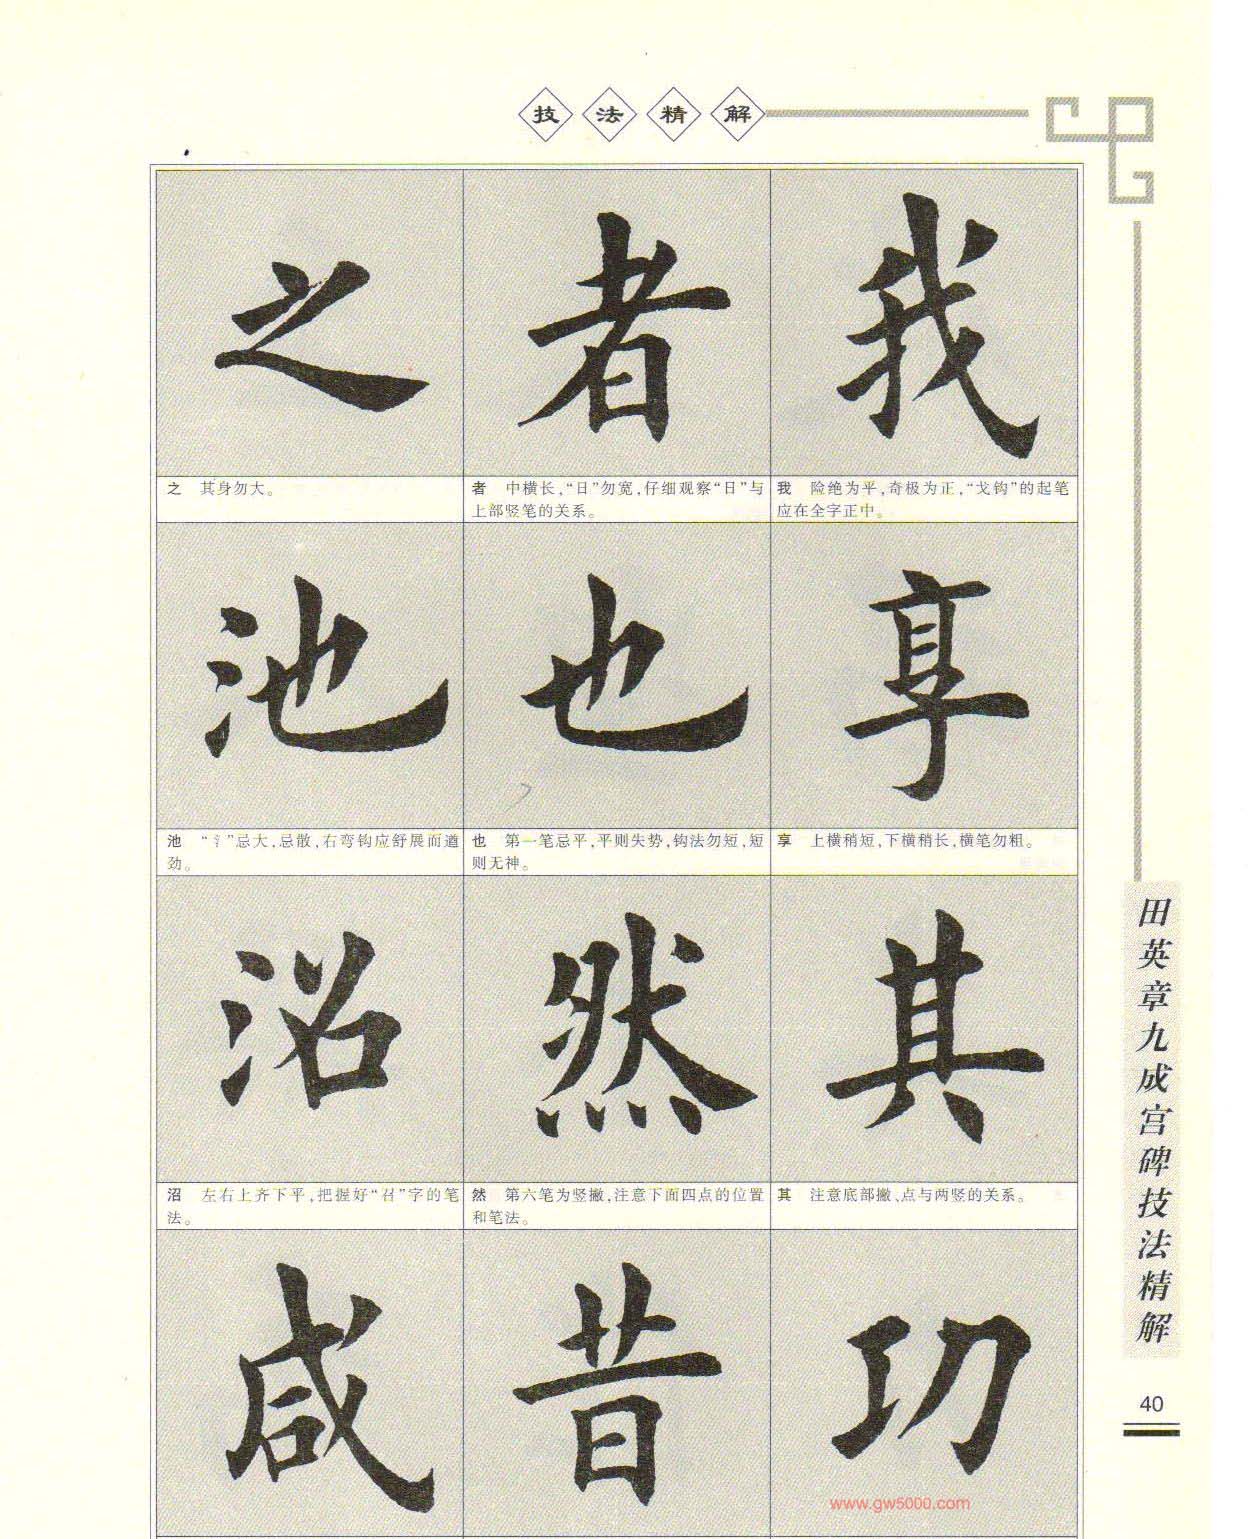 技法精解
之 者 我
之 其身勿大。
者 中横长，“日”勿宽，仔细观察“日”与
上部竖笔的关系。
我 险绝为平，奇极为正，“戈钩”的起笔
应在全字正中。
池 也 享
池 “氵”忌大，忌散，右弯钩应舒展而遒
劲。
也 第一笔忌平，平则失势，钩法勿短，短
则无神。
享 上横稍短，下横稍长，横笔勿粗。
沼 然 其
沼 左右上齐下平，把握好“召”字的笔
法。
然 第六笔为竖撇，注意下面四点的位置
和笔法。
其 注意底部撇、点与两竖的关系。
咸 昔 功
田英章九成宫碑技法精解
40
www.gw5000.com